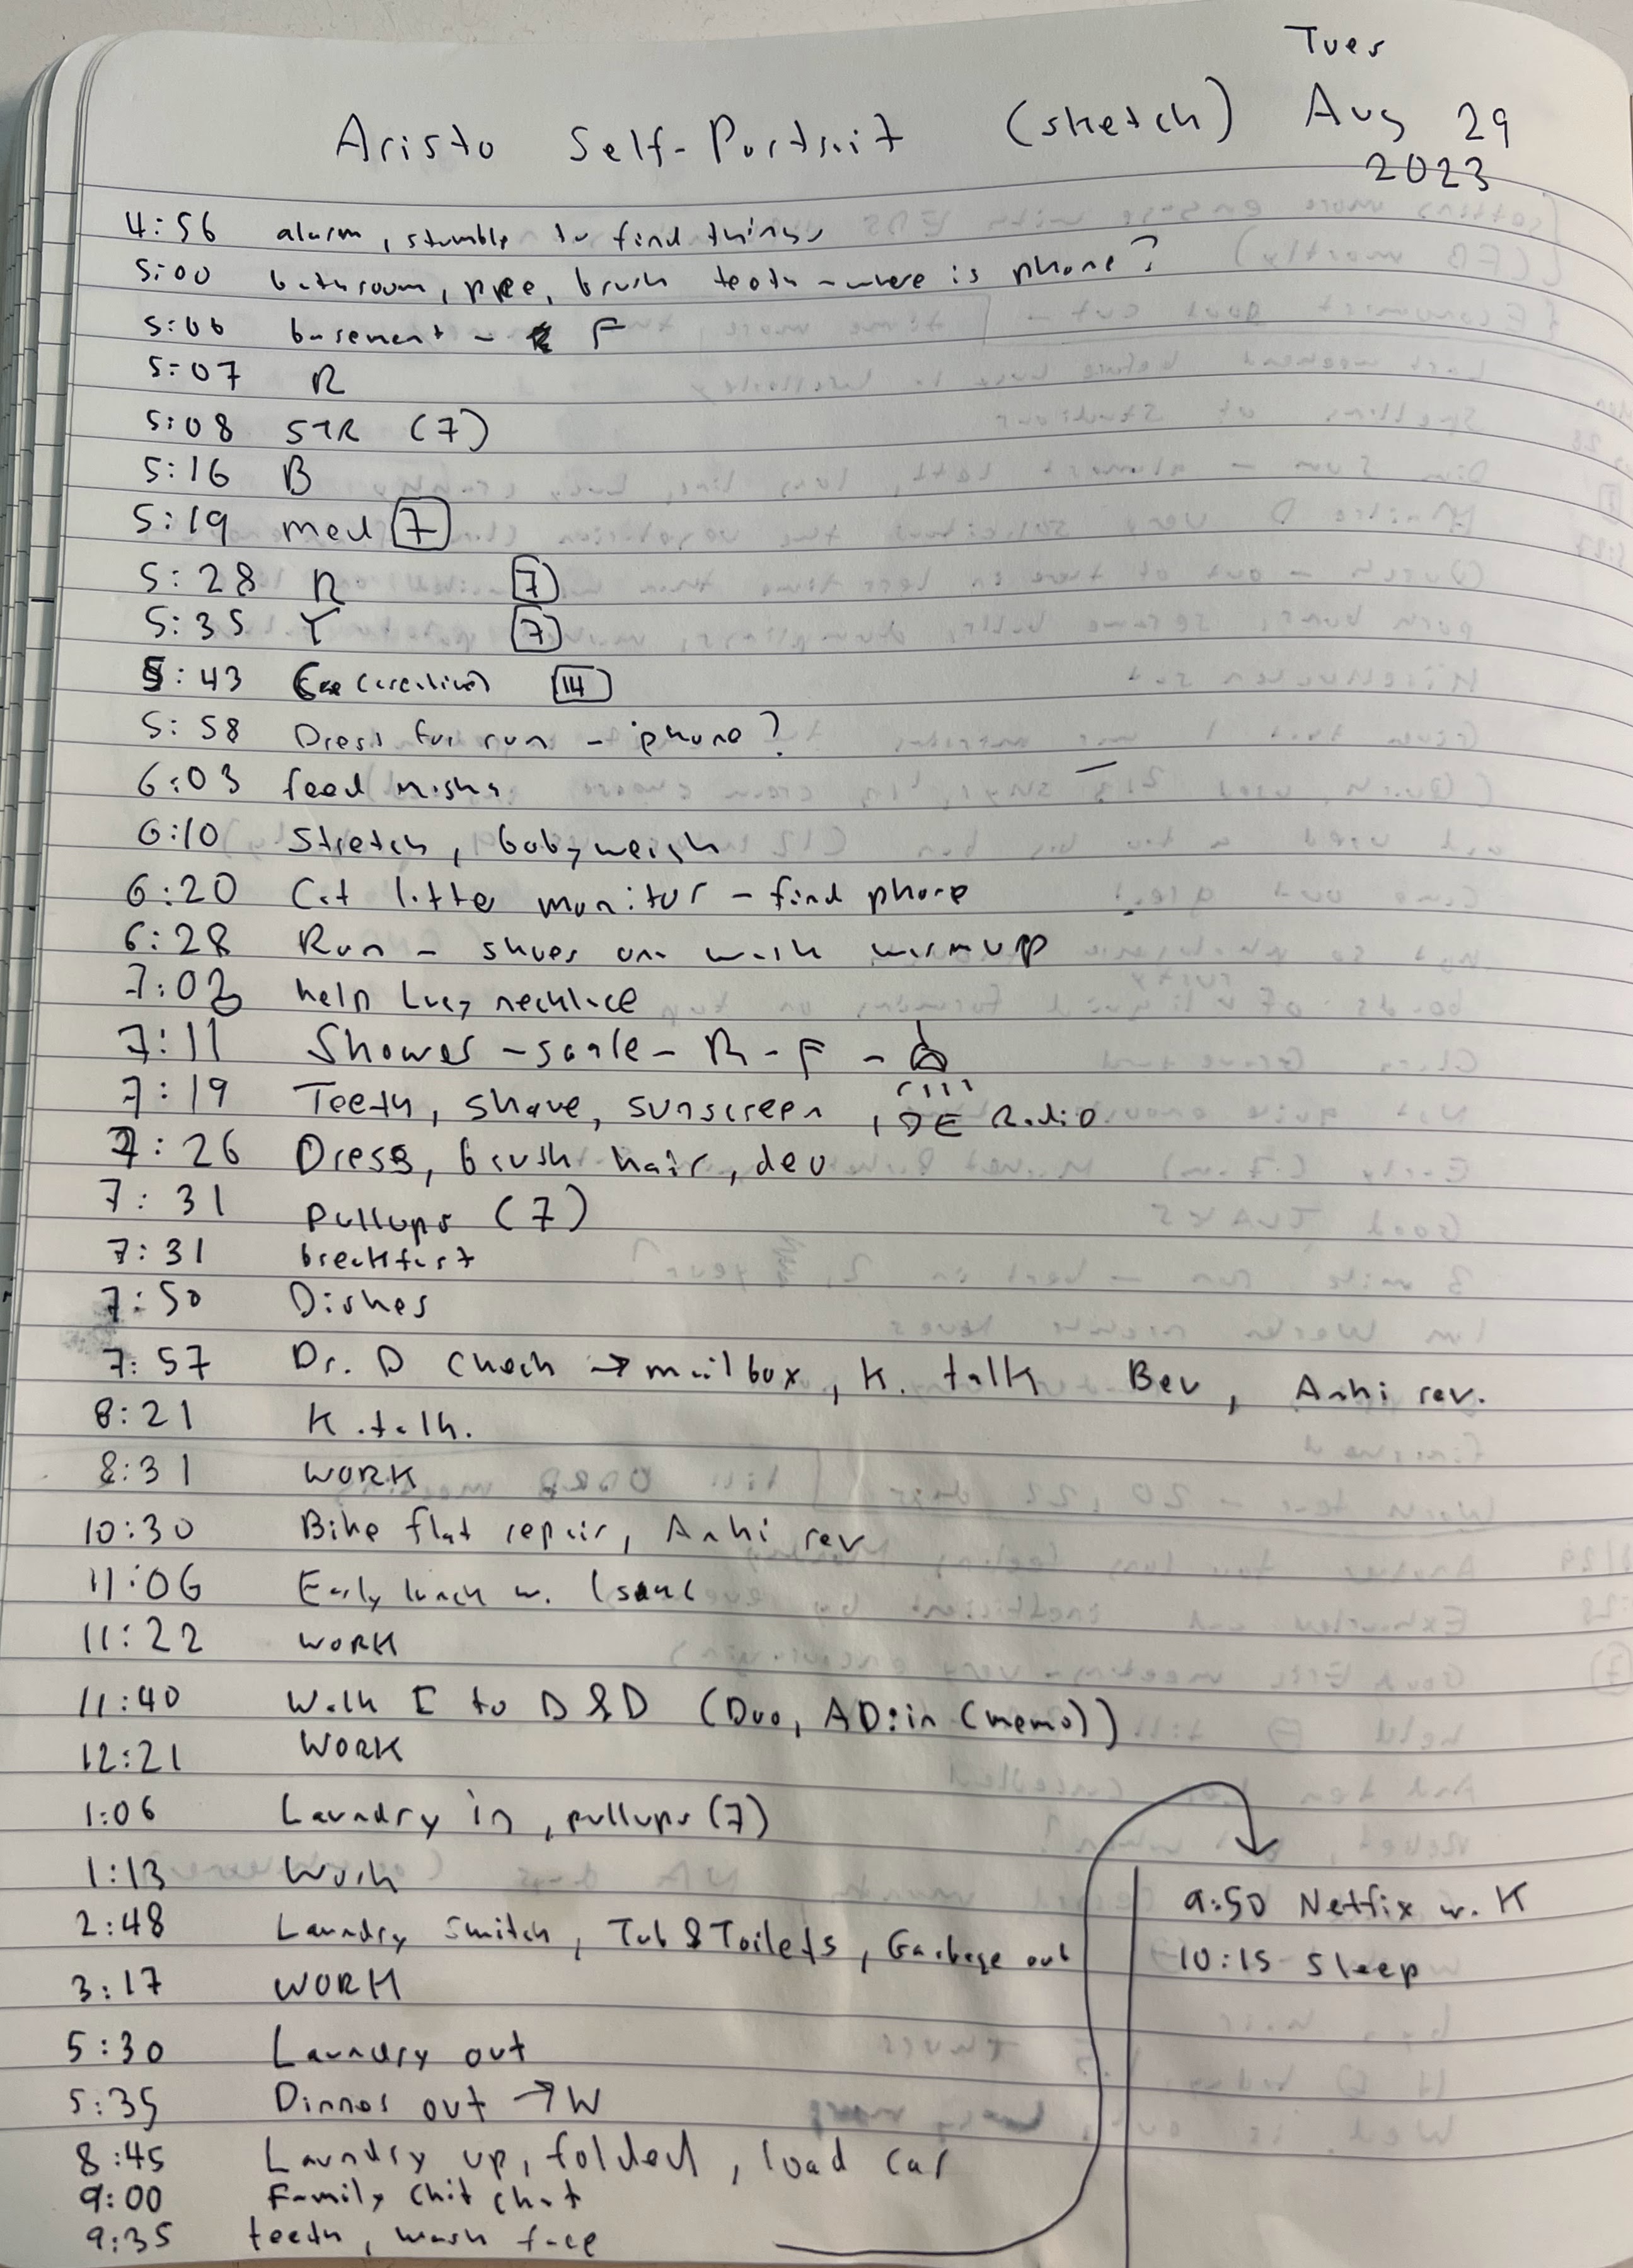 Tues
Aristo Self-Portrait (sketch) Aug 29
2023
4:56 alarm, stumble to find things
5:00 bathroom, pee, brush teeth - where is phone?
5:06 basement - F
5:07 R
5:08 STR (7)
5:16 B
5:19 med 7
5:28 R 7
5:35 Y 7
5:43 (creative) 14
5:58 Dress for run - iphone?
6:03 feed misha
6:10 Stretch, baby weigh
6:20 Cat litter monitor - find phone
6:28 Run - shoes on walk warmup
7:02 help Lucy necklace
7:11 Shower - scale - R - F -
7:19 Teeth, shave, sunscreen, DE Radio
7:26 Dress, brush hair, deo
7:31 Pullups (7)
7:31 breakfast
7:50 Dishes
7:57 Dr. D check → mailbox, K. talk Bev, Anki rev.
8:21 K. talk.
8:31 WORK
10:30 Bike flat repair, Anki rev
11:06 Early lunch w. Isaac
11:22 WORK
11:40 Walk I to D&D (Duo, AD:in (memo))
12:21 WORK
1:06 Laundry in, pullups (7)
1:13 Work
2:48 Laundry switch, Tub & Toilets, Garbage out
3:17 WORK
5:30 Laundry out
5:35 Dinner out → W
8:45 Laundry up, folded, load car
9:00 Family Chit chat
9:35 teeth, wash face
9:50 Netfix w. K
10:15 Sleep